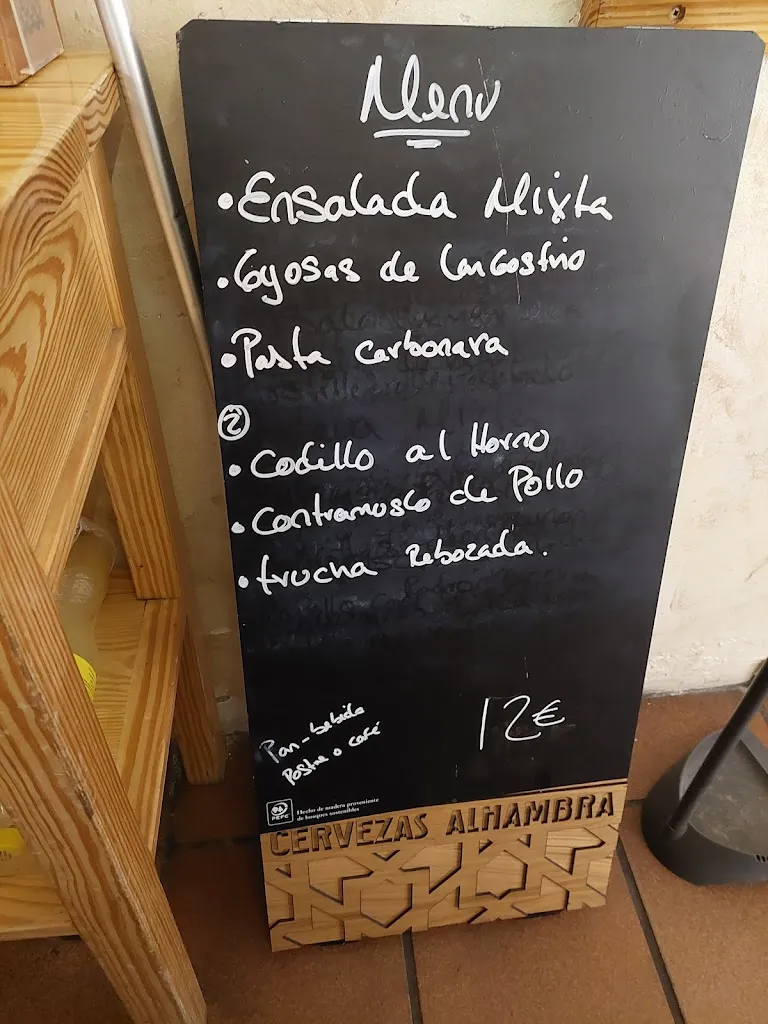 Menu
• Ensalada Mixta
• Gyosas de Langostino
• Pasta carbonara
②
• Codillo al Horno
• Contramuslo de Pollo
• trucha Rebozada.
Pan - bebida
Postre o café
12€
PEFC
Hecho de madera proveniente
de bosques sostenibles
CERVEZAS ALHAMBRA